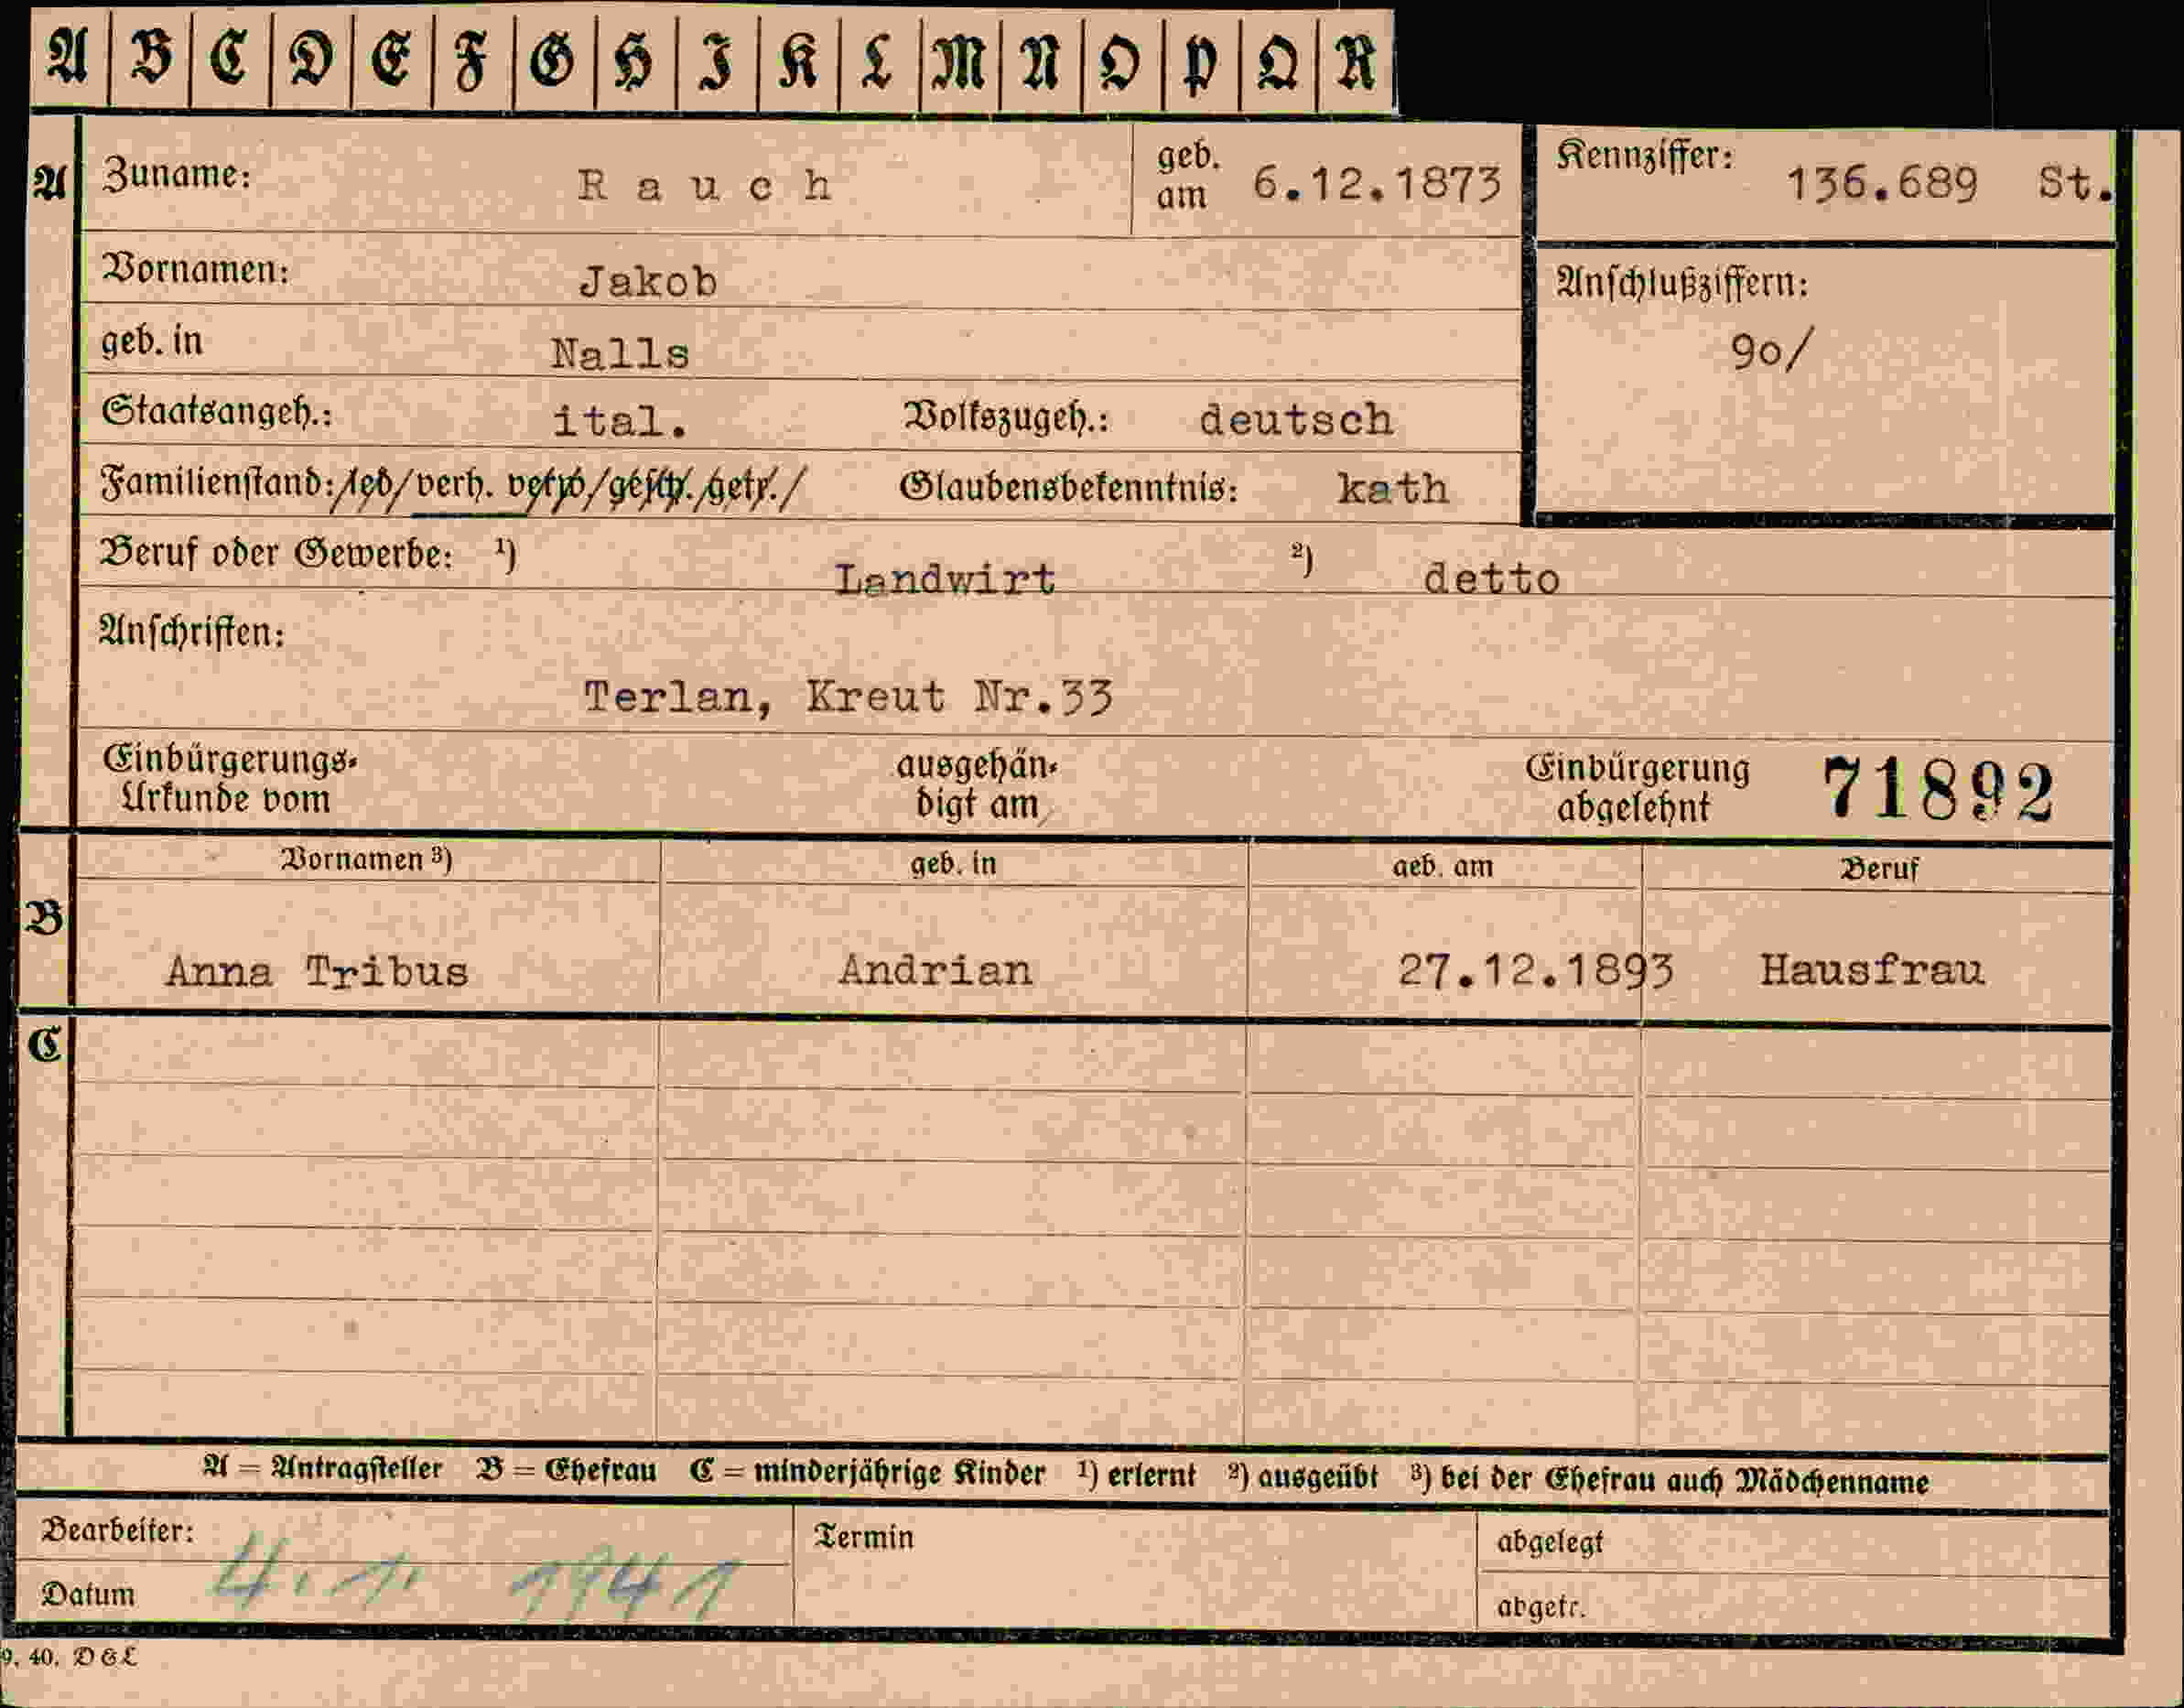 A B C D E F G H I K L M N O P Q R
A Zuname: Rauch geb. am 6.12.1873 Kennziffer: 136.689 St.
Vornamen: Jakob Anschlußziffern:
geb. in Nalls 90/
Staatsangeh.: ital. Volkszugeh.: deutsch
Familienstand: led/verh. verw/gesch./getr./ Glaubensbekenntnis: kath
Beruf oder Gewerbe: ¹) Landwirt ²) detto
Anschriften:
Terlan, Kreut Nr.33
Einbürgerungs- ausgehän- Einbürgerung 71892
Urkunde vom digt am abgelehnt
Vornamen ³) geb. in geb. am Beruf
B
Anna Tribus Andrian 27.12.1893 Hausfrau
C
A = Antragsteller B = Ehefrau C = minderjährige Kinder ¹) erlernt ²) ausgeübt ³) bei der Ehefrau auch Mädchenname
Bearbeiter: Termin abgelegt
Datum 4.1. 1941 abgetr.
9. 40. D&L